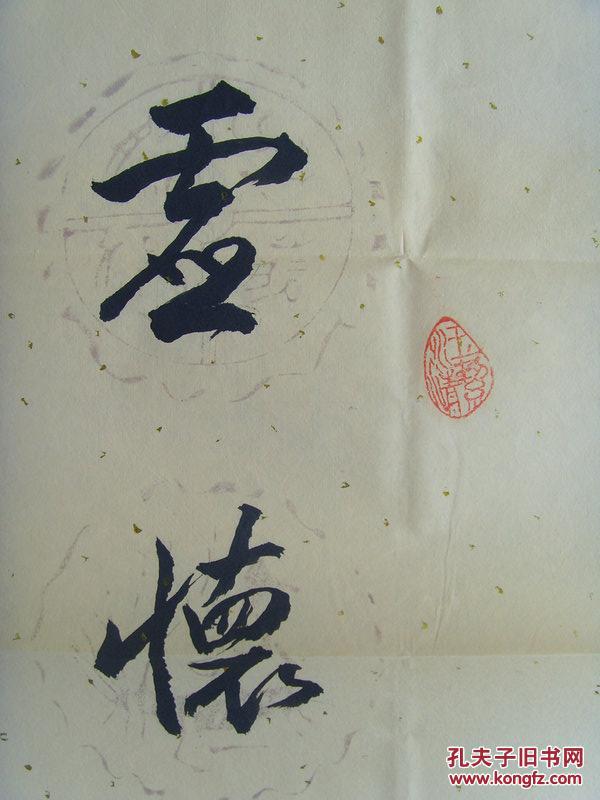 虚
懷
孔夫子旧书网
www.kongfz.com